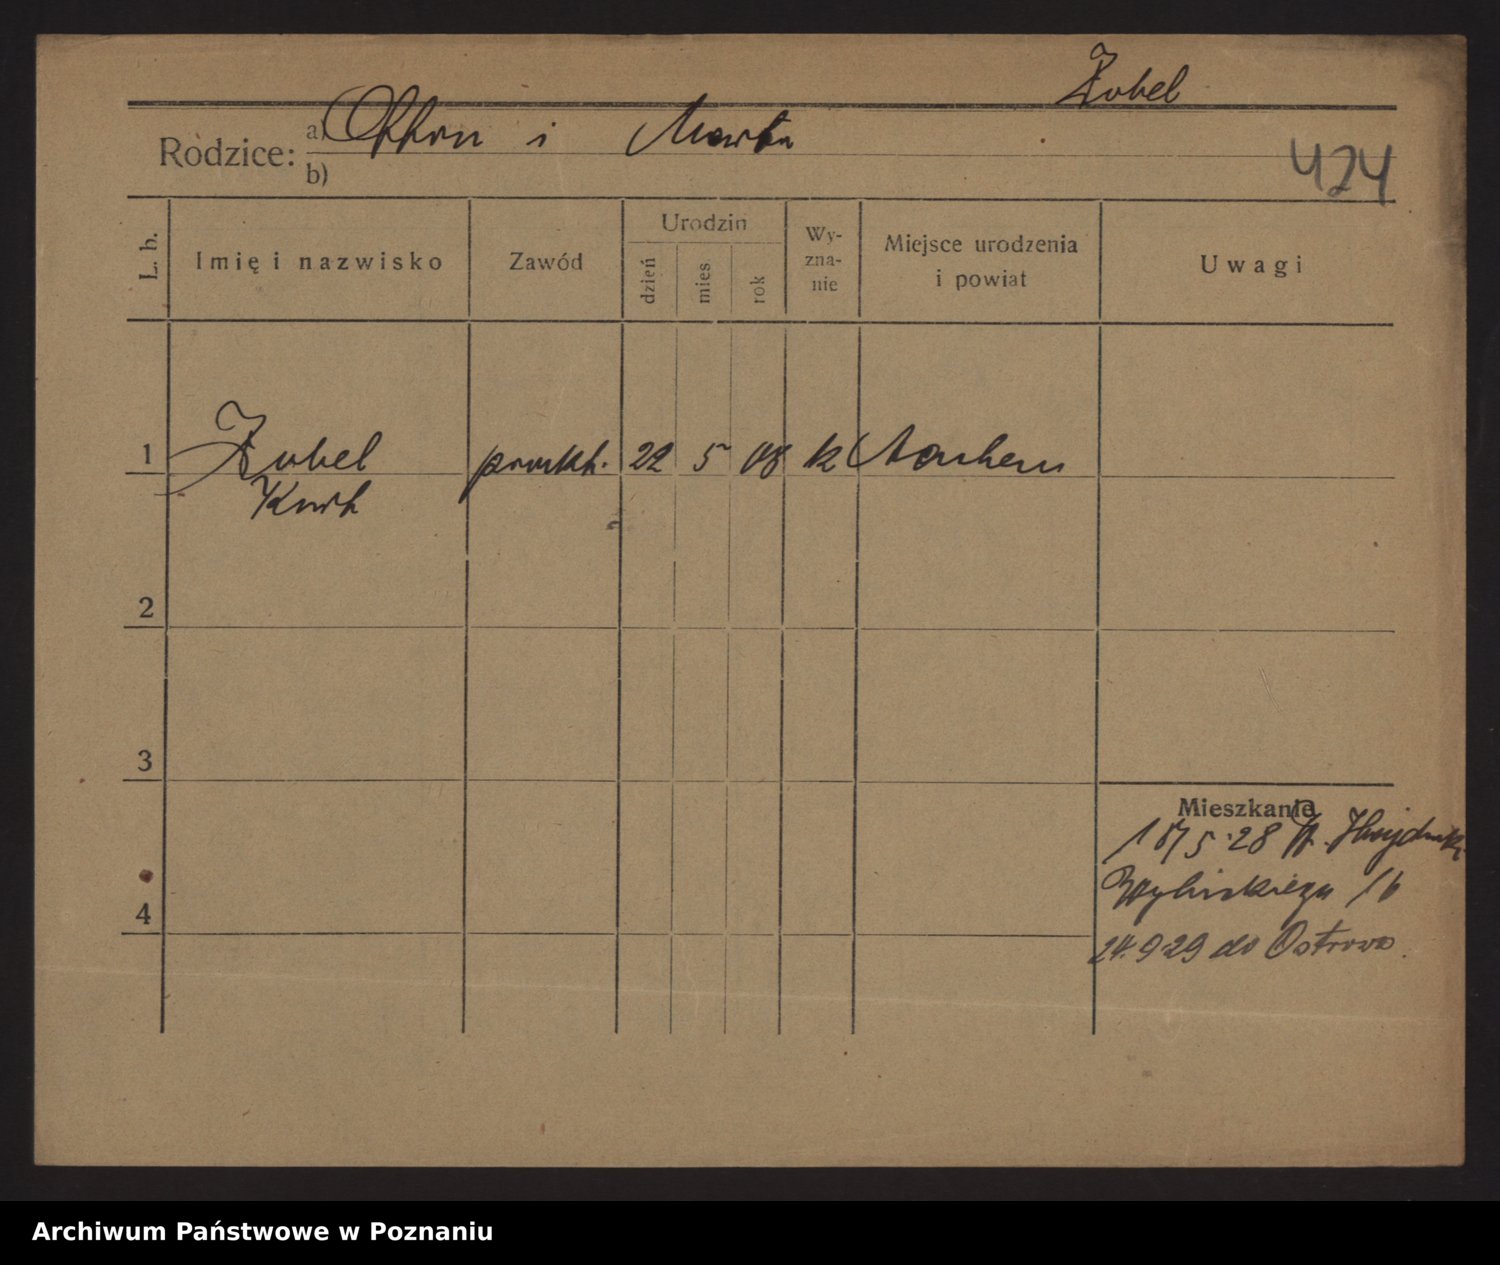 Zobel
Rodzice: a) Otton i Marta
b)
424
L. b.
Imię i nazwisko
Zawód
Urodzin
dzień
mies
rok
Wy-
zna-
nie
Miejsce urodzenia
i powiat
Uwagi
1 Zobel prakt. 22 5 08 k Aachen
Kurt
2
3
4
Mieszkanie
28
16
24.9.29 do Ostrowa.
Archiwum Państwowe w Poznaniu